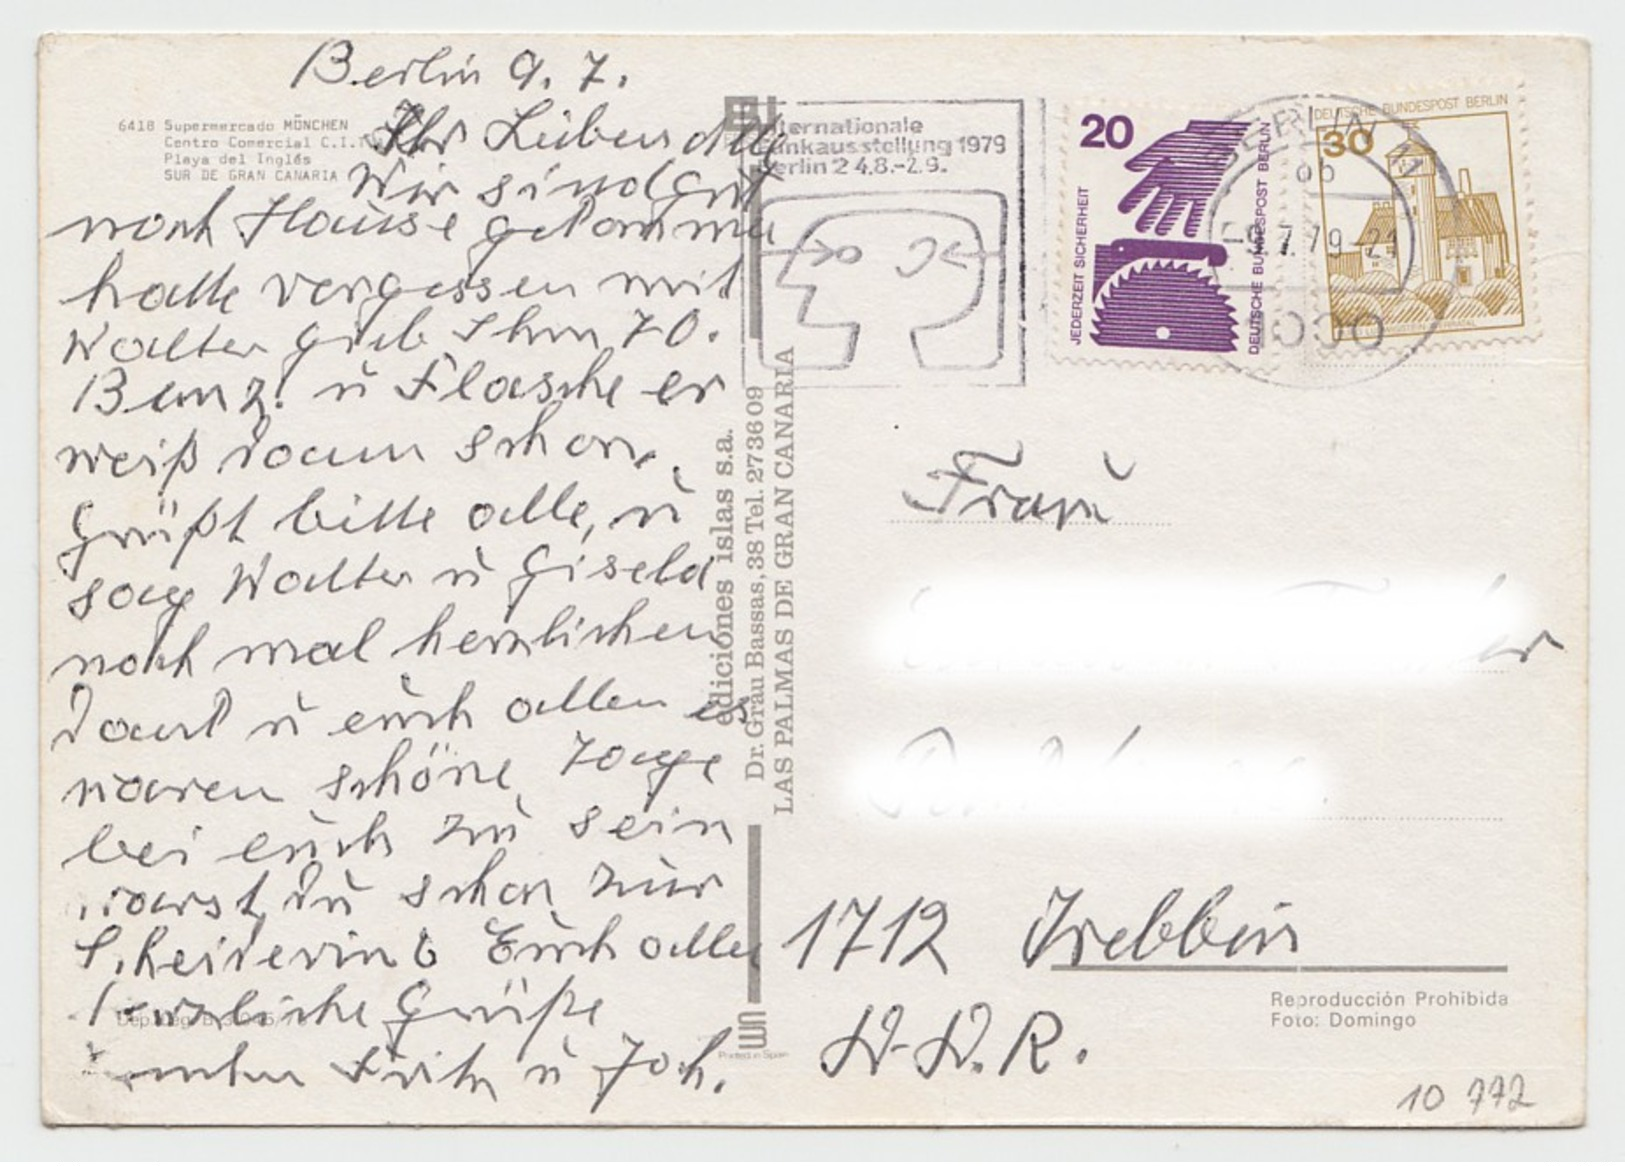 Berlin 9. 7.
6418 Supermercado MÖNCHEN
Centro Comercial C.I.
Playa del Inglés
SUR DE GRAN CANARIA
Ihr Lieben alle
Wir sind gut
nach Hause gekommen
hatte vergessen mit
Walter gieb Ihm 70.
Benz. u Flasche er
weiß dann schon.
Grüßt bitte alle, u
sag Walter u Gisela
noch mal herzlichen
Dank u euch allen es
waren schöne Tage
bei euch zu sein
warst Du schon zur
Euch allen
herzliche Grüße
Fritz u Joh.
Dep. Leg. B.
ediciones islas s.a.
Dr. Grau Bassas, 38 Tel. 273609
LAS PALMAS DE GRAN CANARIA
Printed in Spain
Internationale
Funkausstellung 1979
Berlin 24.8.-2.9.
20
JEDERZEIT SICHERHEIT
DEUTSCHE BUNDESPOST BERLIN
DEUTSCHE BUNDESPOST BERLIN
30
BERLIN
-9.7.79-21
1000
Frau
1712 Trebbin
D.D.R.
Reproducción Prohibida
Foto: Domingo
10 772